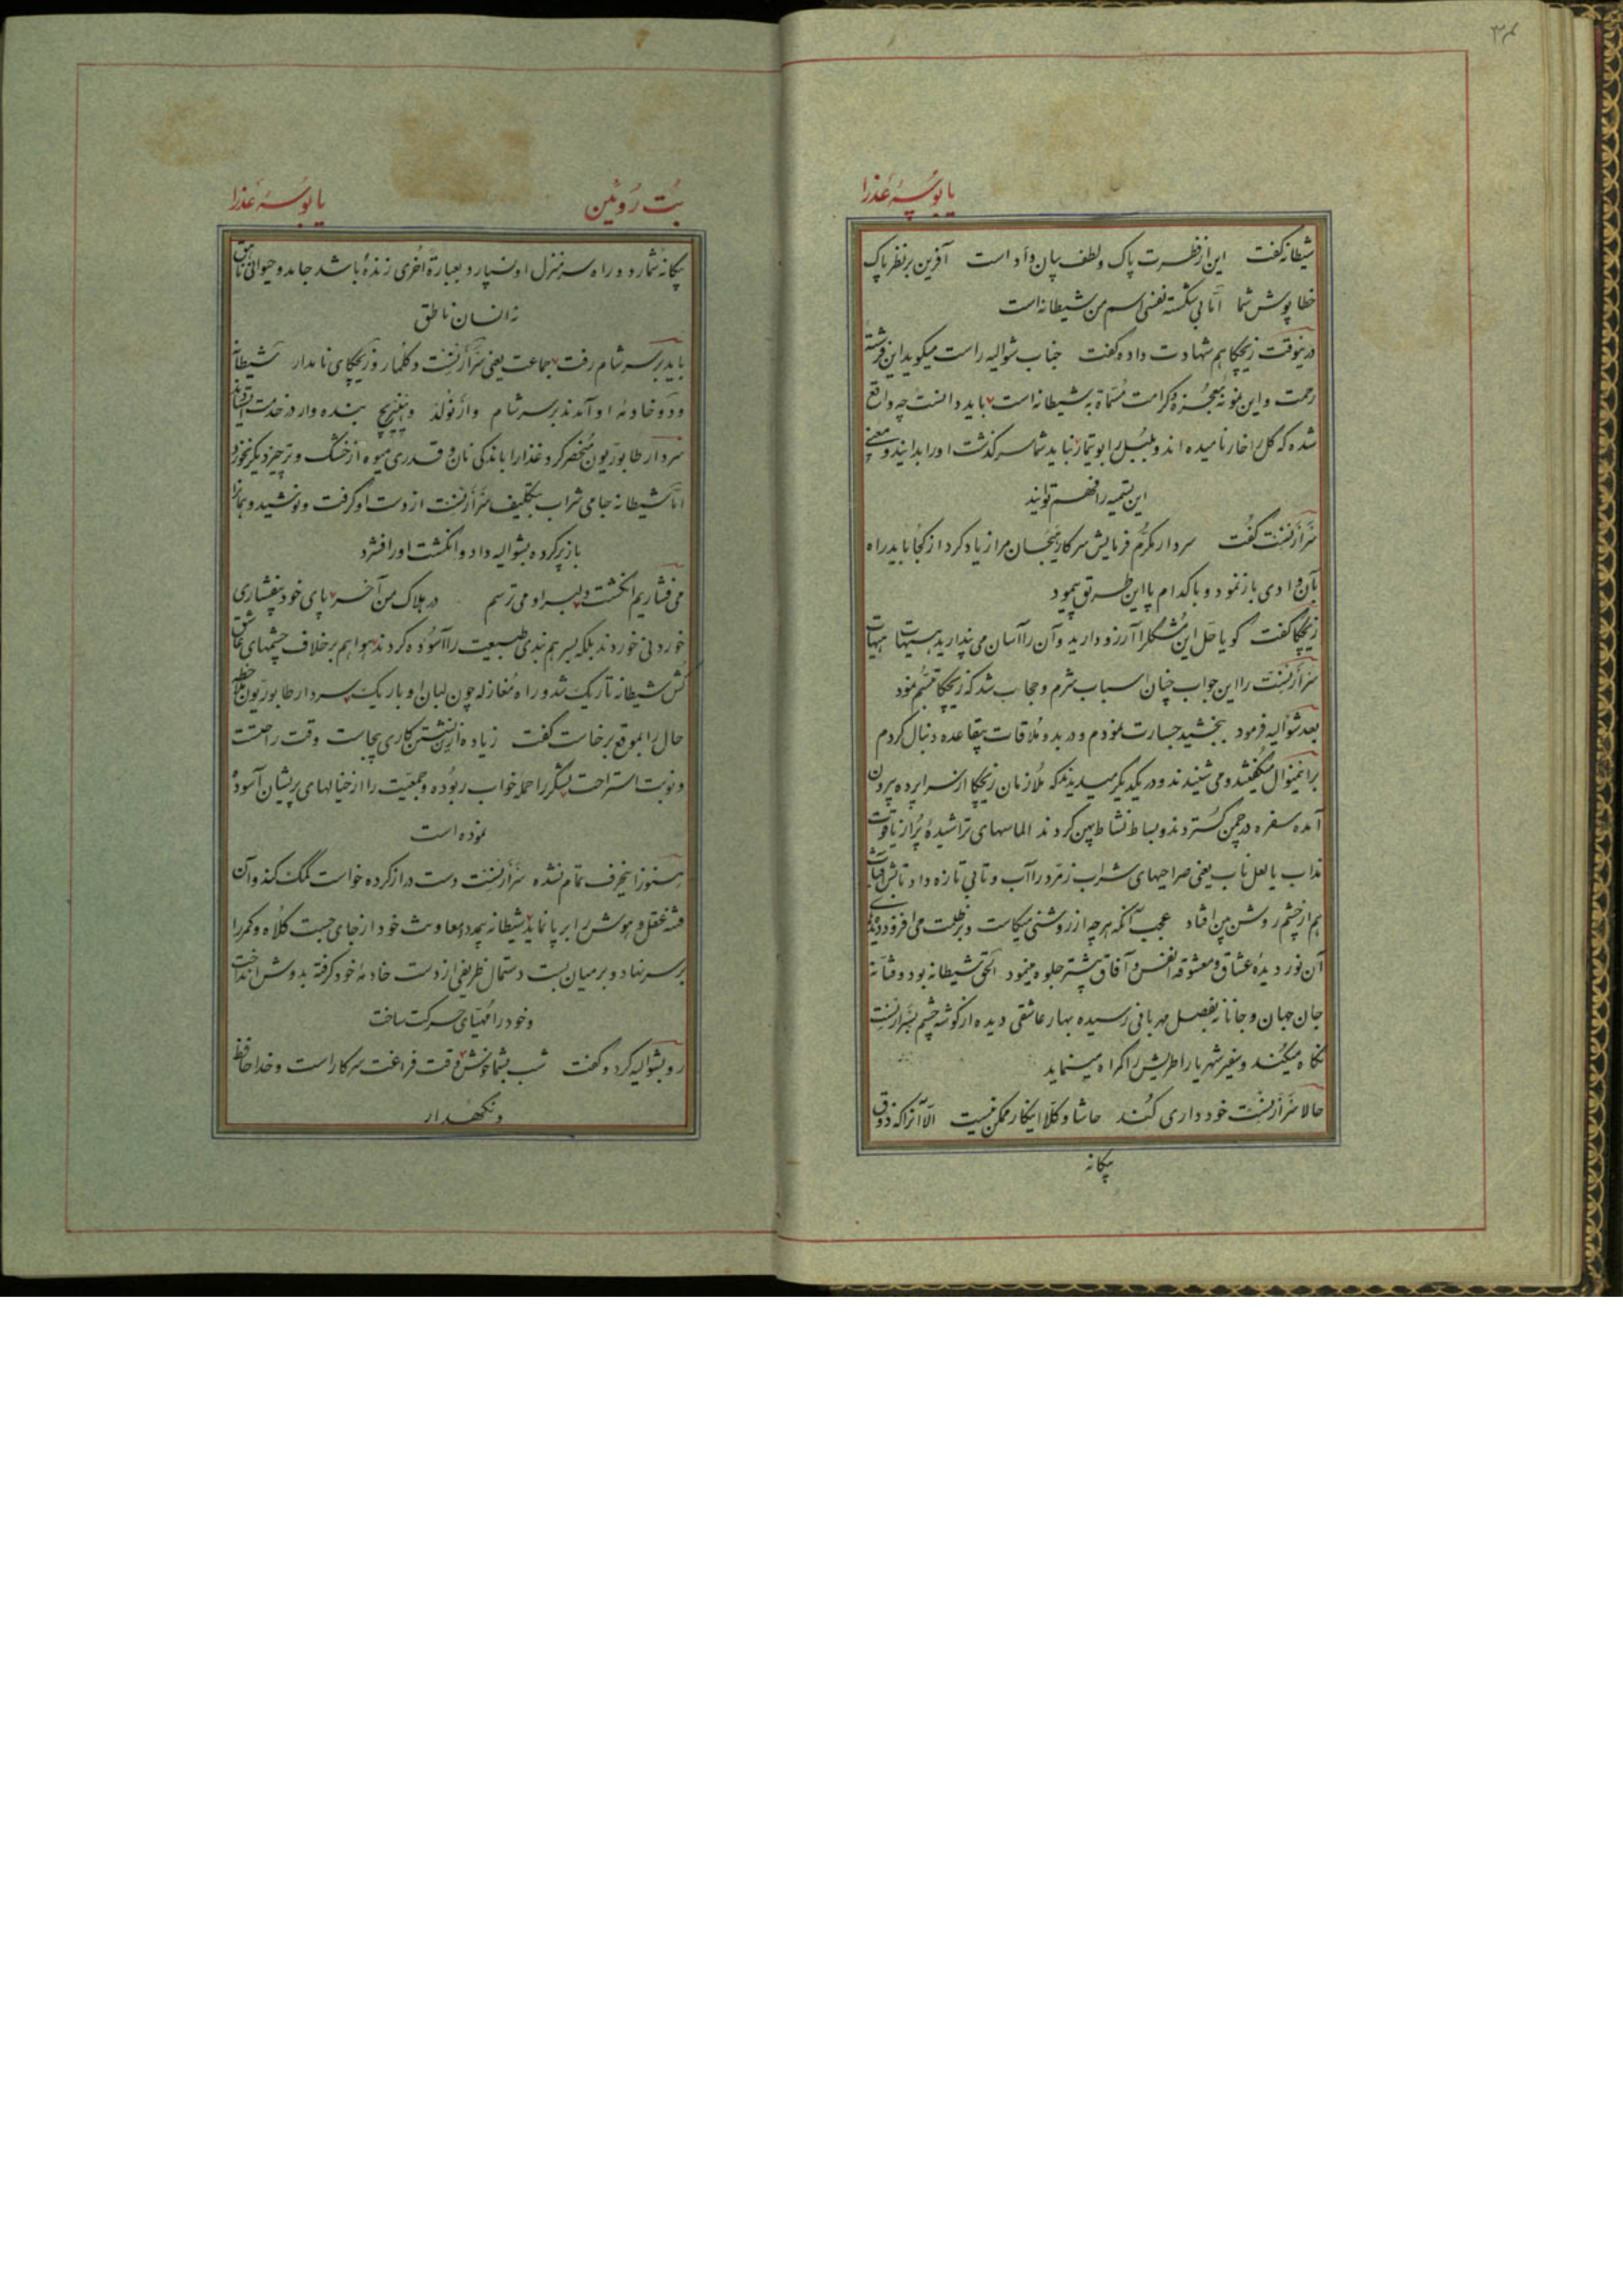 ۳۴
یا بوسهٔ عذرا
شیطانه گفت این از فطرت پاک و لطف بیان و أد است آفرین بر نظر پاک
خطا پوش شما امّا بی شکسته نفسی اسم من شیطانه است
درینوقت زیچکا هم شهادت داده گفت جناب شوالیه راست میگوید این فرشتهٔ
رحمت و این نمونهٔ معجزه و کرامت مسمّاة به شیطانه است باید دانست چه واقع
شده که گل را خار نامیده اند و بلبل را بوتیمار نباید شما سرگذشت او را بدانید و معنی
این تسمیه را فهم توانید
سرآرنست گفت سردار مکرّم فرمایش سرکار هیجان مرا زیاد کرد از کجا باید راه
بآن وادی باز نمود و با کدام پا این طریق پیمود
زیچکا گفت گویا حلّ این مشکل را آرزو دارید و آن را آسان می پندارید هیهات هیهات
سرآرنست را این جواب چنان اسباب شرم و حجاب شد که زیچکا تبسّم نمود
بعد شوالیه فرمود ببخشید جسارت نمودم و در بدو ملاقات بیقاعده دنبال کردم
برین منوال میگفتند و می شنیدند و در یکدیگر میدیدند که ملازمان زیچکا از سراپرده بیرون
آمده سفره در چمن گستردند و بساط نشاط پهن کردند الماسهای تراشیدهٔ پر از یاقوت
مذاب یا لعل ناب یعنی صراحیهای شراب زمرّد را آب و تابی تازه داد تابش آفتاب
هم از چشم روشن بین افتاد عجب آنکه هر چه از روشنی میکاست و بر ظلمت می افزود در دیدهٔ
آن نور دیدهٔ عشاق و معشوقهٔ انفس و آفاق بیشتر جلوه مینمود الحق شیطانه بود و فتّانه
جان جهان و جانانه بفصل مهربانی رسیده بهار عاشقی دیده از گوشهٔ چشم بسرآرنست
نگاه میکند و سفیر شهریار اطریش را گمراه مینماید
حالا سرآرنست خودداری کند حاشا و کلّا اینکار ممکن نیست الّا آنرا که ذوق
بیگانه
بت روئین یا بوسهٔ عذرا
بیگانه شمارد و راه سرمنزل او نسپارد بعبارة اُخری زنده باشد جامد و حیوانی ناهق
نه انسان ناطق
باید بر سر شام رفت جماعت یعنی سرآرنست و کلمار و زیچکای نامدار شیطانه
و دو خادمهٔ او آمدند بر سر شام و آرنولد و هینریچ بنده وار در خدمت ایستاده اند
سردار طابوریون منحصر کرد غذا را باندکی نان و قدری میوه از خشک و تر چیز دیگر نخورد
امّا شیطانه جامی شراب بتکلیف سرآرنست از دست او گرفت و نوشید و همانرا
باز پر کرده بشوالیه داد و انگشت او را فشرد
می فشاریم انگشت دلبر او می ترسم در هلاک من آخر پای خود بیفشاری
خوردنی خوردند بلکه بسر هم بندی طبیعت را آسوده کردند هوا هم بر خلاف چشمهای عاشق
کش شیطانه تاریک شد و راه مغازله چون لبان او باریک سردار طابوریون ملاحظهٔ
حال را بموقع برخاست گفت زیاده ازین نشستن کاری بیجاست وقت راحتست
و نوبت استراحت لشکر را حمله خواب ربوده و جمعیّت را از خیالهای پریشان آسوده
نموده است
هنوز اینحرف تمام نشده سرآرنست دست دراز کرده خواست کمک کند و آن
فتنه عقل و هوش را برپا نماید شیطانه بیمدد و معاونت خود از جای جست کلاه و کمر را
بر سر نهاد و بر میان بست دستمال ظریفی از دست خادمهٔ خود گرفته بدوش انداخت
و خود را مهیّای حرکت ساخت
رو بشوالیه کرد و گفت شب بشما خوش وقت فراغت سرکار است و خدا حافظ
و نگهدار